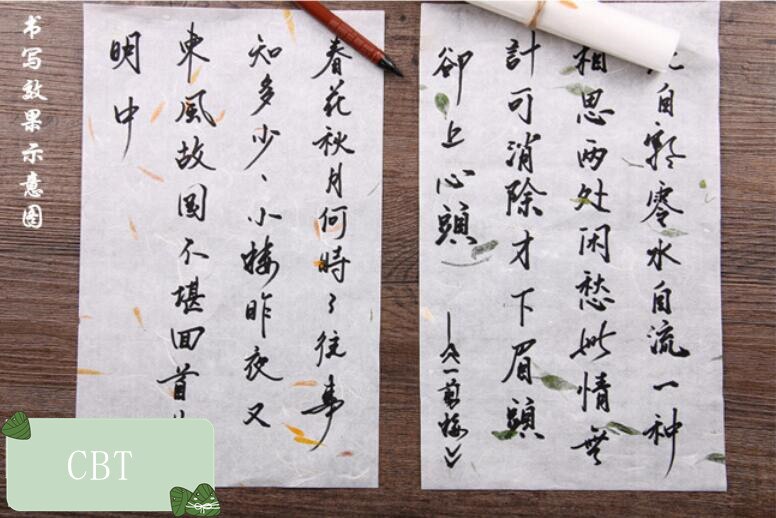 书写效果示意图
自飘零水自流一种
相思两处闲愁此情無
計可消除才下眉頭
卻上心頭
——《一剪梅》
春花秋月何時了往事
知多少、小楼昨夜又
東風故国不堪回首
明中
CBT